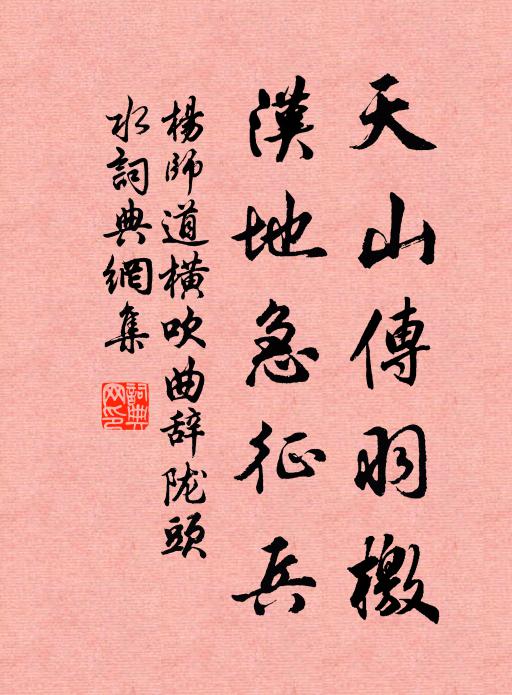 天山傳羽檄
漢地急征兵
楊師道横吹曲辞陇頭
水詞典網集
詞典
网印